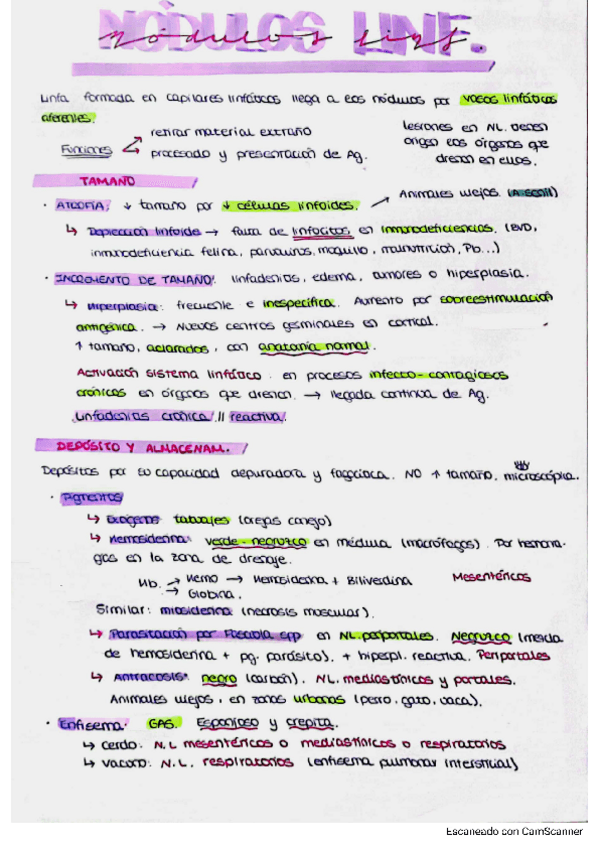 NÓDULOS LINF.
nódulos linf.
Linfa formada en capilares linfáticos llega a los nódulos por vasos linfáticos
aferentes.
Funciones
retirar material extraño
procesado y presentación de Ag.
lesiones en NL. tienen
origen los órganos que
drenan en ellos.
TAMAÑO
· ATROFIA: ↓ tamaño por ↓ células linfoides. → Animales viejos. (A. senil)
↳ Depleción linfoide → falta de linfocitos en inmunodeficiencias. (BVD,
inmunodeficiencia felina, parvovirus, moquillo, malnutrición, Pb...)
· INCREMENTO DE TAMAÑO: linfadenitis, edema, tumores o hiperplasia.
↳ Hiperplasia: frecuente e inespecífica. Aumento por sobreestimulación
antigénica. → Nuevos centros germinales en cortical.
↑ tamaño, aclarados, con anatomía normal.
Activación sistema linfático en procesos infecto-contagiosos
crónicos en órganos que drenan. → llegada continua de Ag.
Linfadenitis crónica // reactiva.
DEPÓSITO Y ALMACENAM.
Depósitos por su capacidad depuradora y fagocítica. NO ↑ tamaño. microscópia.
· Pigmentos
↳ Exógeno: tatuajes (orejas conejo)
↳ Hemosiderina: verde-negruzco en médula (macrófagos). Por hemorra-
gias en la zona de drenaje.
Hb. → Hemo → Hemosiderina + Biliverdina
→ Globina.
Mesentéricos
Similar: miosiderina (necrosis muscular).
↳ Parasitación por Fasciola spp en NL periportales. Negruzco (mezcla
de hemosiderina + pg. parásito). + hiperpl. reactiva. Periportales
↳ Antracosis: negro (carbón). NL. mediastínicos y portales.
Animales viejos, en zonas urbanas (perro, gato, vaca).
· Enfisema: GAS. Esponjoso y crepita.
↳ cerdo: N.L mesentéricos o mediastínicos o respiratorios
↳ vacuno: N.L. respiratorios (enfisema pulmonar intersticial)
Escaneado con CamScanner